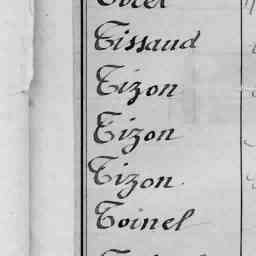 Tissaud
Tizon
Tizon
Tizon.
Toinel